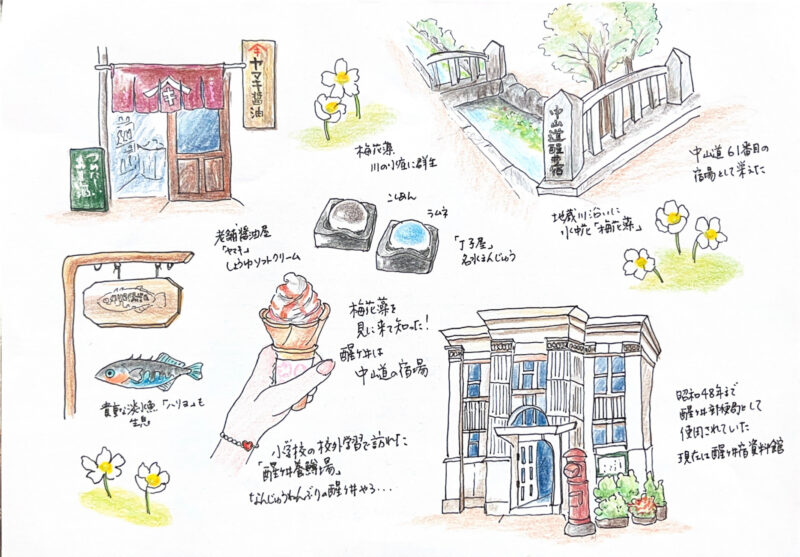 ヤマキ醤油
キ
梅花藻
川の水痕に群生
中山道醒井宿
中山道61番目の
宿場として栄えた
地蔵川沿いに
水中花「梅花藻」
こしあん
ラムネ
「丁子屋」
名水まんじゅう
老舗醤油屋
「ヤマキ」
しょうゆソフトクリーム
梅花藻を
見に来て知った!
醒ヶ井は
中山道の宿場
貴重な淡水魚「ハリヨ」も
生息
小学校の校外学習で訪れた
「醒ヶ井養鱒場」
なんじゅうねんぶりの醒ヶ井やろ...
昭和48年まで
醒ヶ井郵便局として
使用されていた
現在は醒ヶ井宿資料館